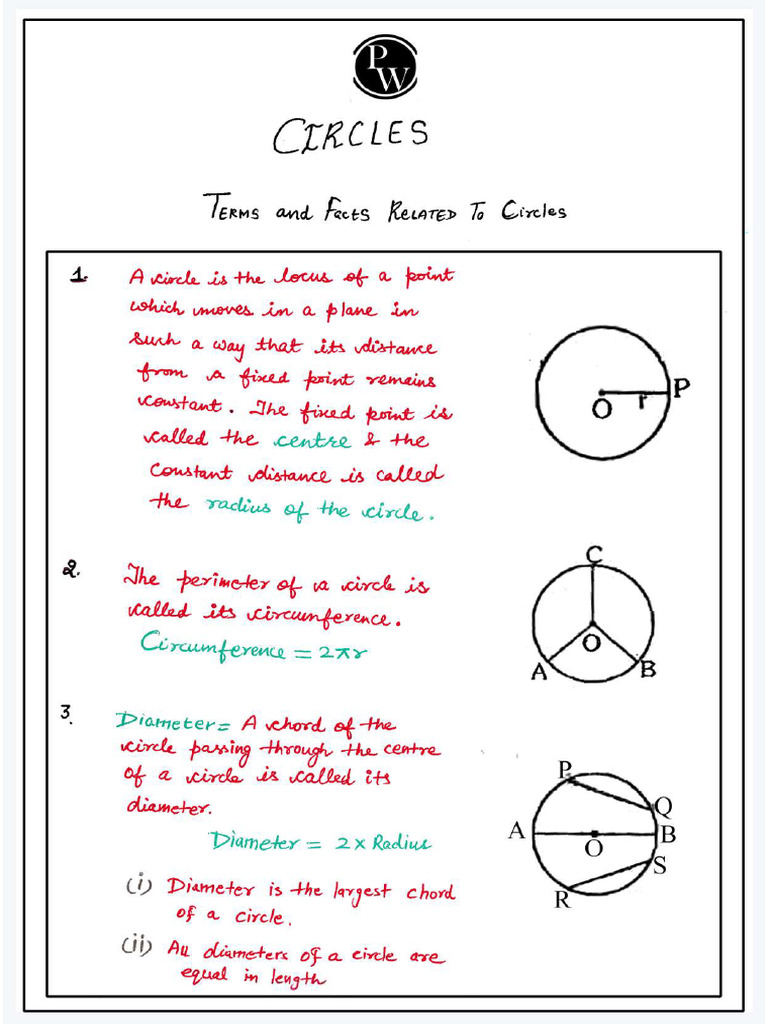 PW
CIRCLES
TERMS and Facts RELATED To Circles
1. A circle is the locus of a point
which moves in a plane in
such a way that its distance
from a fixed point remains
constant. The fixed point is
called the centre & the
constant distance is called
the radius of the circle.
O r P
2. The perimeter of a circle is
called its circumference.
Circumference = 2πr
C
O
A B
3. Diameter = A chord of the
circle passing through the centre
of a circle is called its
diameter.
Diameter = 2 x Radius
(i) Diameter is the largest chord
of a circle.
(ii) All diameters of a circle are
equal in length
P
Q
A O B
S
R